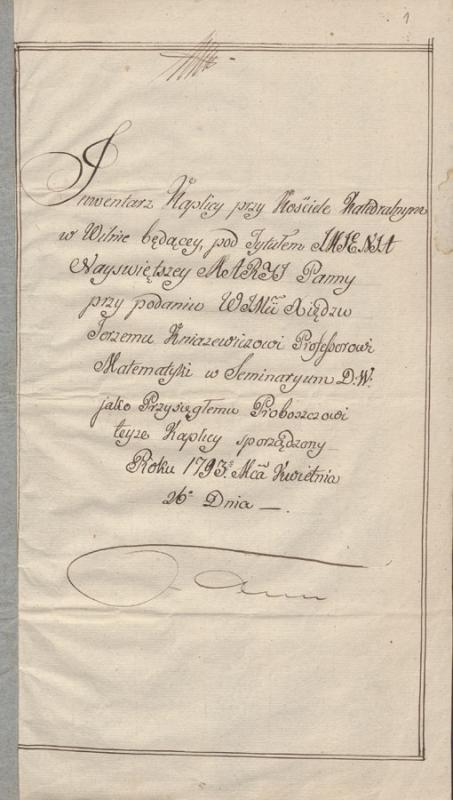 1
Inwentarz Kaplicy przy Kościele Katedralnym
w Wilnie będącey, pod Tytułem IMIENIA
Nayswiętszey MARYI Panny
przy podaniu WIMCi Xiędzu
Jerzemu Kniazewiczowi Professorowi
Matematyki w Seminaryum D. W.
jako Przysięgłemu Proboszczowi
teyże Kaplicy sporządzony
Roku 1793. Mca Kwietnia
26. Dnia —.